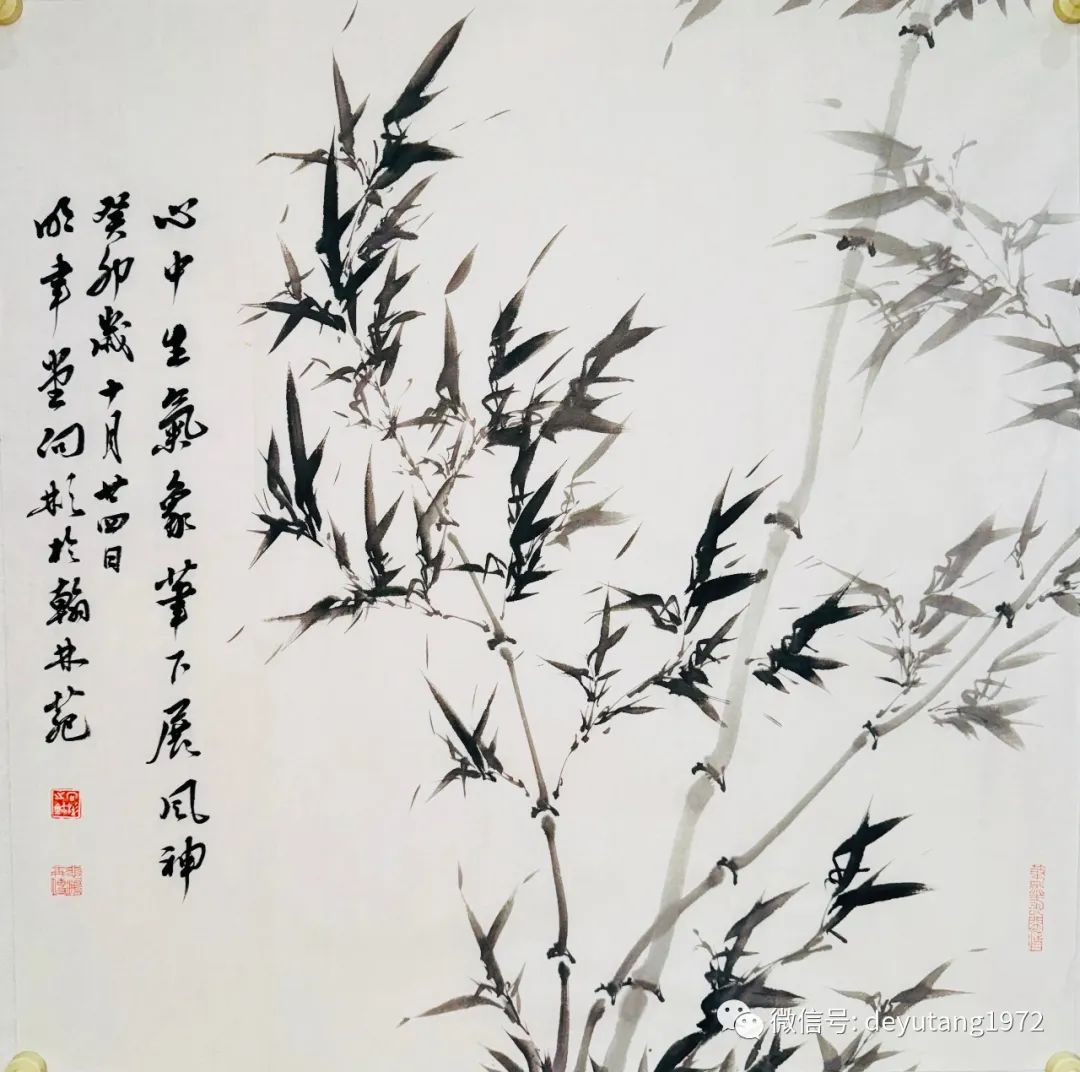 心中生氣象筆下展风神
癸卯歲十月廿四日
堂问彬於翰林苑
微信号: deyutang1972